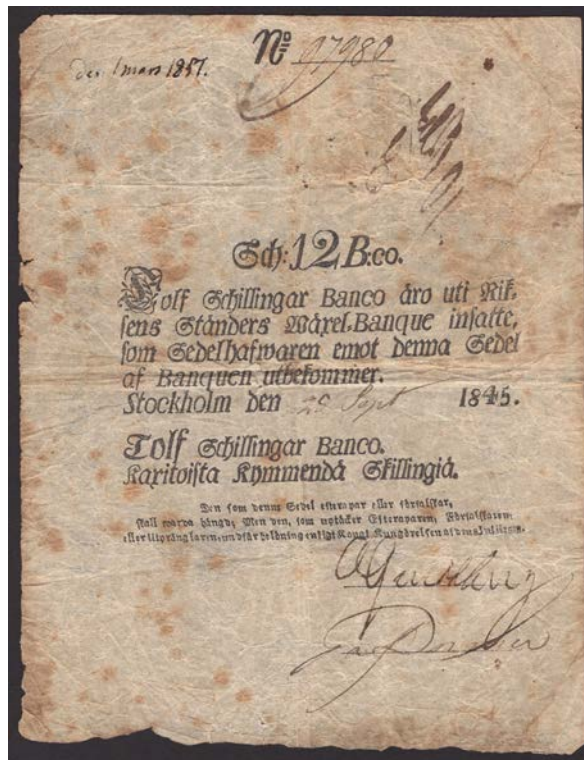 No 97980
den 1 mars 1857.
Sch: 12 B:co.
Tolf Schillingar Banco äro uti Rik-
sens Ständers Wäxel-Banque insatte,
som Sedelhafwaren emot denna Sedel
af Banquen utbekommer.
Stockholm den 20 Sept 1845.
Tolf Schillingar Banco.
Kaxitoista Kymmendä Skillingiä.
Den som denne Sedel efterapar eller förfalskar,
skall warda hängd; Men den, som uptäcker Efteraparen, Förfalskaren
eller Utpränglaren, undfår belöning enligt Kongl. Kungörelsen af den